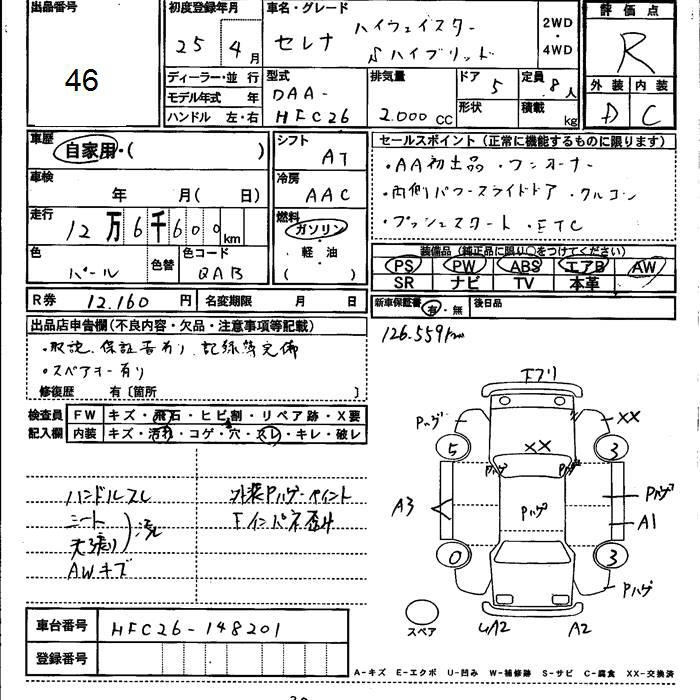 出品番号
46
初度登録年月
25年 4月
車名・グレード
セレナ
ハイウェイスター
Sハイブリッド
2WD
・
4WD
評価点
R
外装 内装
D C
ディーラー・並行
モデル年式 年
ハンドル 左・右
型式
DAA-
HFC26
排気量
2.000 CC
ドア
5
形状
定員
8人
積載
kg
車歴
自家用・( )
シフト
AT
セールスポイント (正常に機能するものに限ります)
・AA初出品 ・ワンオーナー
・両側パワースライドドア ・クルコン
・プッシュスタート ・ETC
車検
年 月( 日)
冷房
AAC
走行
12万6千600km
燃料
ガソリン
・軽油
( )
色
パール
色替
色コード
QAB
装備品 (純正品に限り○をつけてください)
PS PW ABS エアB AW
SR ナビ TV 本革
R券 12.160 円
名変期限 月 日
新車保証書 有・無
後日品
126.559km
出品店申告欄 (不良内容・欠品・注意事項等記載)
・取説、保証書有り、記録等完備
・スペアキー有り
修復歴 有〔箇所 〕
検査員
記入欄
FW キズ・飛石・ヒビ割・リペア跡・X要
内装 キズ・汚れ・コゲ・穴・スレ・キレ・破レ
ハンドルスレ
シート
天張り
AWキズ
外装Pハゲ・ペイント
Fインパネ歪み
Pハゲ
XX
5
XX
3
Pハゲ
Pハゲ
A3
Pハゲ
Pハゲ
A1
0
3
Pハゲ
スペア
A2
A2
車台番号 HFC26-148201
登録番号
A-キズ E-エクボ U-凹み W-補修跡 S-サビ C-腐食 XX-交換済